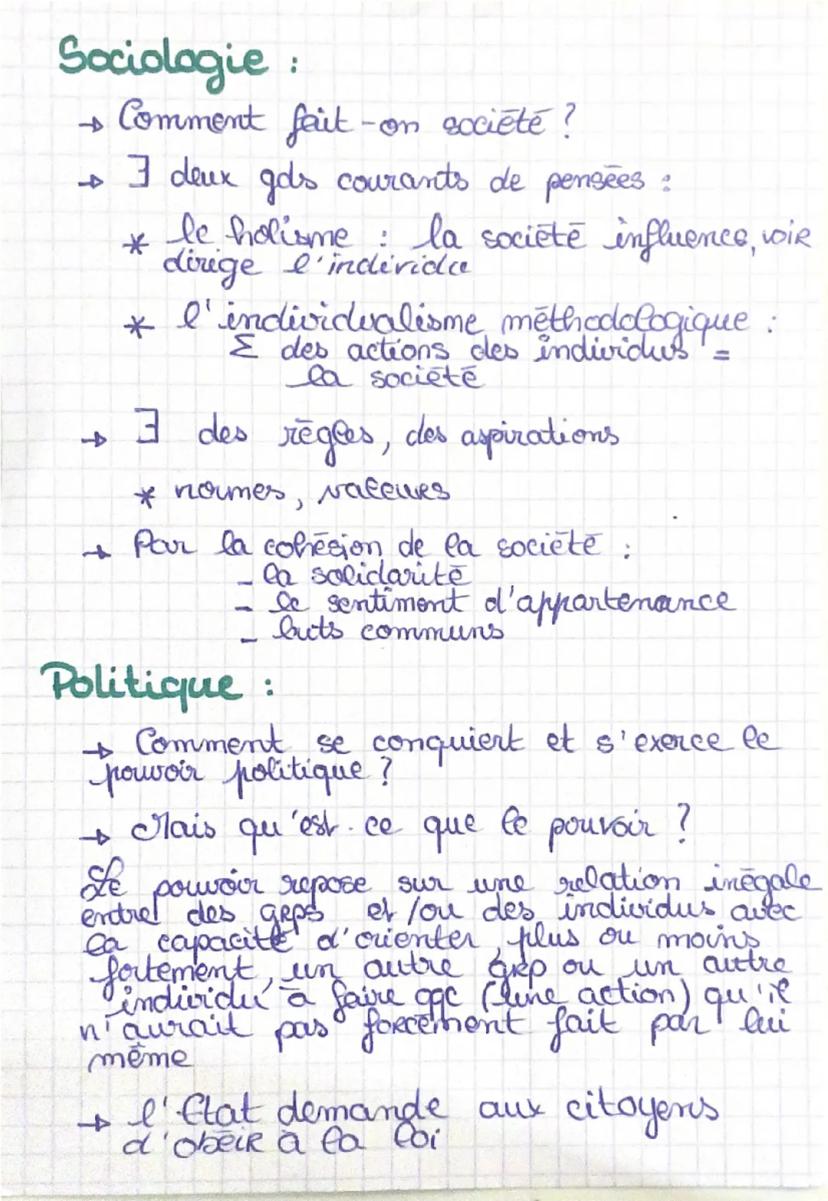 Sociologie :
→ Comment fait-on société ?
→ ∃ deux gds courants de pensées :
* le holisme : la société influence, voir
dirige l'individu
* l'individualisme méthodologique :
Σ des actions des individus =
la société
→ ∃ des règles, des aspirations
* normes, valeurs
→ Par la cohésion de la société :
- la solidarité
- le sentiment d'appartenance
- buts communs
Politique :
→ Comment se conquiert et s'exerce le
pouvoir politique ?
→ Mais qu'est-ce que le pouvoir ?
Le pouvoir repose sur une relation inégale
entre des grps et/ou des individus avec
la capacité d'orienter, plus ou moins
fortement, un autre grp ou un autre
individu à faire qqc (une action) qu'il
n'aurait pas forcément fait par lui
même
→ l'Etat demande aux citoyens
d'obéir à la loi